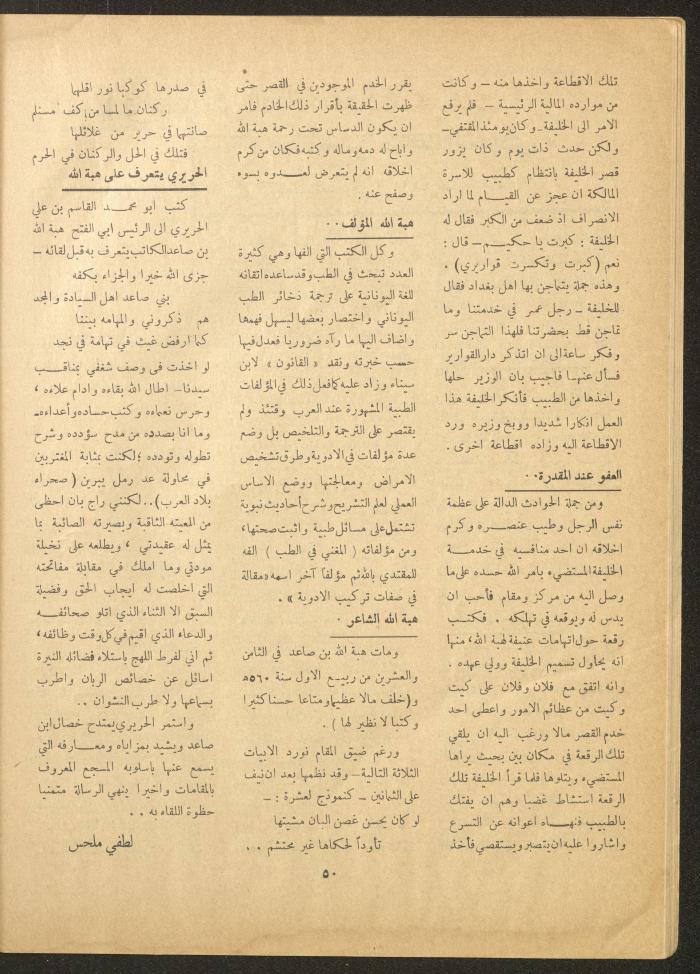 تلك الاقطاعة واخذها منه – وكانت
من موارده المالية الرئيسية – فلم يرفع
الامر الى الخليفة – وكان يومئذ المقتفي –
ولكن حدث ذات يوم وكان يزور
قصر الخليفة بانتظام كطبيب للاسرة
المالكة ان عجز عن القيام لما اراد
الانصراف اذ ضعف من الكبر فقال له
الخليفة : كبرت يا حكيم – قال :
نعم (كبرت وتكسرت قواريري) .
وهذه جملة يتماجن بها اهل بغداد فقال
للخليفة – رجل عمر في خدمتنا وما
تماجن قط بحضرتنا فلهذا التماجن سر
وفكر ساعة الى ان اتذكر دار القوارير
فسأل عنها فاجيب بان الوزير حلها
واخذها من الطبيب فأنكر الخليفة هذا
العمل انكارا شديدا ووبخ وزيره ورد
الاقطاعة اليه وزاده اقطاعة اخرى .
العفو عند المقدرة . .
ومن جملة الحوادث الدالة على عظمة
نفس الرجل وطيب عنصره وكرم
اخلاقه ان احد منافسيه في خدمة
الخليفة المستضيء بامر الله حسده على ما
وصل اليه من مركز ومقام فأحب ان
يدس له ويوقعه في تهلكه . فكتب
رقعة حول اتهامات عنيفة لهبة الله ، منها
انه يحاول تسميم الخليفة وولي عهده .
وانه اتفق مع فلان وفلان على كيت
وكيت من عظائم الامور واعطى احد
خدم القصر مالا ورغب اليه ان يلقي
تلك الرقعة في مكان بين بحيث يراها
المستضيء ويتلوها فلما قرأ الخليفة تلك
الرقعة استشاط غضبا وهم ان يفتك
بالطبيب فنهاه اعوانه عن التسرع
واشاروا عليه ان يتصبر ويستقصي فأخذ
يقرر الخدم الموجودين في القصر حتى
ظهرت الحقيقة بأقرار ذلك الخادم فامر
ان يكون الدساس تحت رحمة هبة الله
واباح له دمه وماله وكتبه فكان من كرم
اخلاقه انه لم يتعرض لعدوه بسوء
وصفح عنه .
هبة الله المؤلف . .
وكل الكتب التي الفها وهي كثيرة
العدد تبحث في الطب وقد ساعده اتقانه
للغة اليونانية على ترجمة ذخائر الطب
اليوناني واختصار بعضها ليسهل فهمها
واضاف اليها ما رآه ضروريا فعدل فيها
حسب خبرته ونقد « القانون » لابن
سيناء وزاد عليه كما فعل ذلك في المؤلفات
الطبية المشهورة عند العرب وقتئذ ولم
يقتصر على الترجمة والتلخيص بل وضع
عدة مؤلفات في الادوية وطرق تشخيص
الامراض ومعالجتها ووضع الاساس
العملي لعلم التشريح وشرح أحاديث نبوية
تشتمل على مسائل طبية واثبت صحتها ،
ومن مؤلفاته ( المغني في الطب ) الفه
للمقتدي بالله ثم مؤلفاً آخر اسمه «مقالة
في صفات تركيب الادوية » .
هبة الله الشاعر .
ومات هبة الله بن صاعد في الثامن
والعشرين من ربيع الاول سنة ٥٦٠ هـ
و(خلف مالا عظيما ومتاعا حسنا كثيرا
وكتبا لا نظير لها ) .
ورغم ضيق المقام نورد الابيات
الثلاثة التالية – وقد نظمها بعد ان نيف
على الثمانين – كنموذج لعشرة : –
لو كان يحسن غصن البان مشيتها
تأوداً لحكاها غير محتشم . .
في صدرها كوكبا نور اقلهما
ركنان ما لمسا من كف مستلم
صانتهما في حرير من غلائلها
فتلك في الحل والركنان في الحرم
الحريري يتعرف على هبة الله
كتب ابو محمد القاسم بن علي
الحريري الى الرئيس ابي الفتح هبة الله
بن صاعد الكاتب يتعرف به قبل لقائه –
جزى الله خيرا والجزاء بكفه
بني صاعد اهل السيادة والمجد
هم ذكروني والمهامه بيننا
كما ارفض غيث في تهامة في نجد
لو اخذت في وصف شغفي بمناقب
سيدنا – اطال الله بقاءه وادام علاءه ،
وحرس نعماءه وكتب حساده وأعداءه –
وما انا بصدده من مدح سؤدده وشرح
تطوله وتودده ؛ لكنت بمثابة المغتربين
في محاولة عد رمل يبرين (صحراء
بلاد العرب) . . لكنني راج بان احظى
من المعيته الثاقبة وبصيرته الصائبة بما
يمثل له عقيدتي ، ويطلعه على نخيلة
مودتي وما املك في مقابلة مفاتحته
التي اخلصت له ايجاب الحق وفضيلة
السبق الا الثناء الذي اتلو صحائفه
والدعاء الذي اقيم في كل وقت وظائفه ،
ثم اني لفرط اللهج باستلاء فضائله النيرة
اسائل عن خصائص الربان واطرب
بسماعها ولا طرب النشوان . .
واستمر الحريري يمتدح خصال ابن
صاعد ويشيد بمزاياه ومعارفه التي
يسمع عنها بأسلوبه المسجع المعروف
بالمقامات واخيرا ينهي الرسالة متمنيا
حظوة اللقاء به . .
لطفي ملحس
٥٠